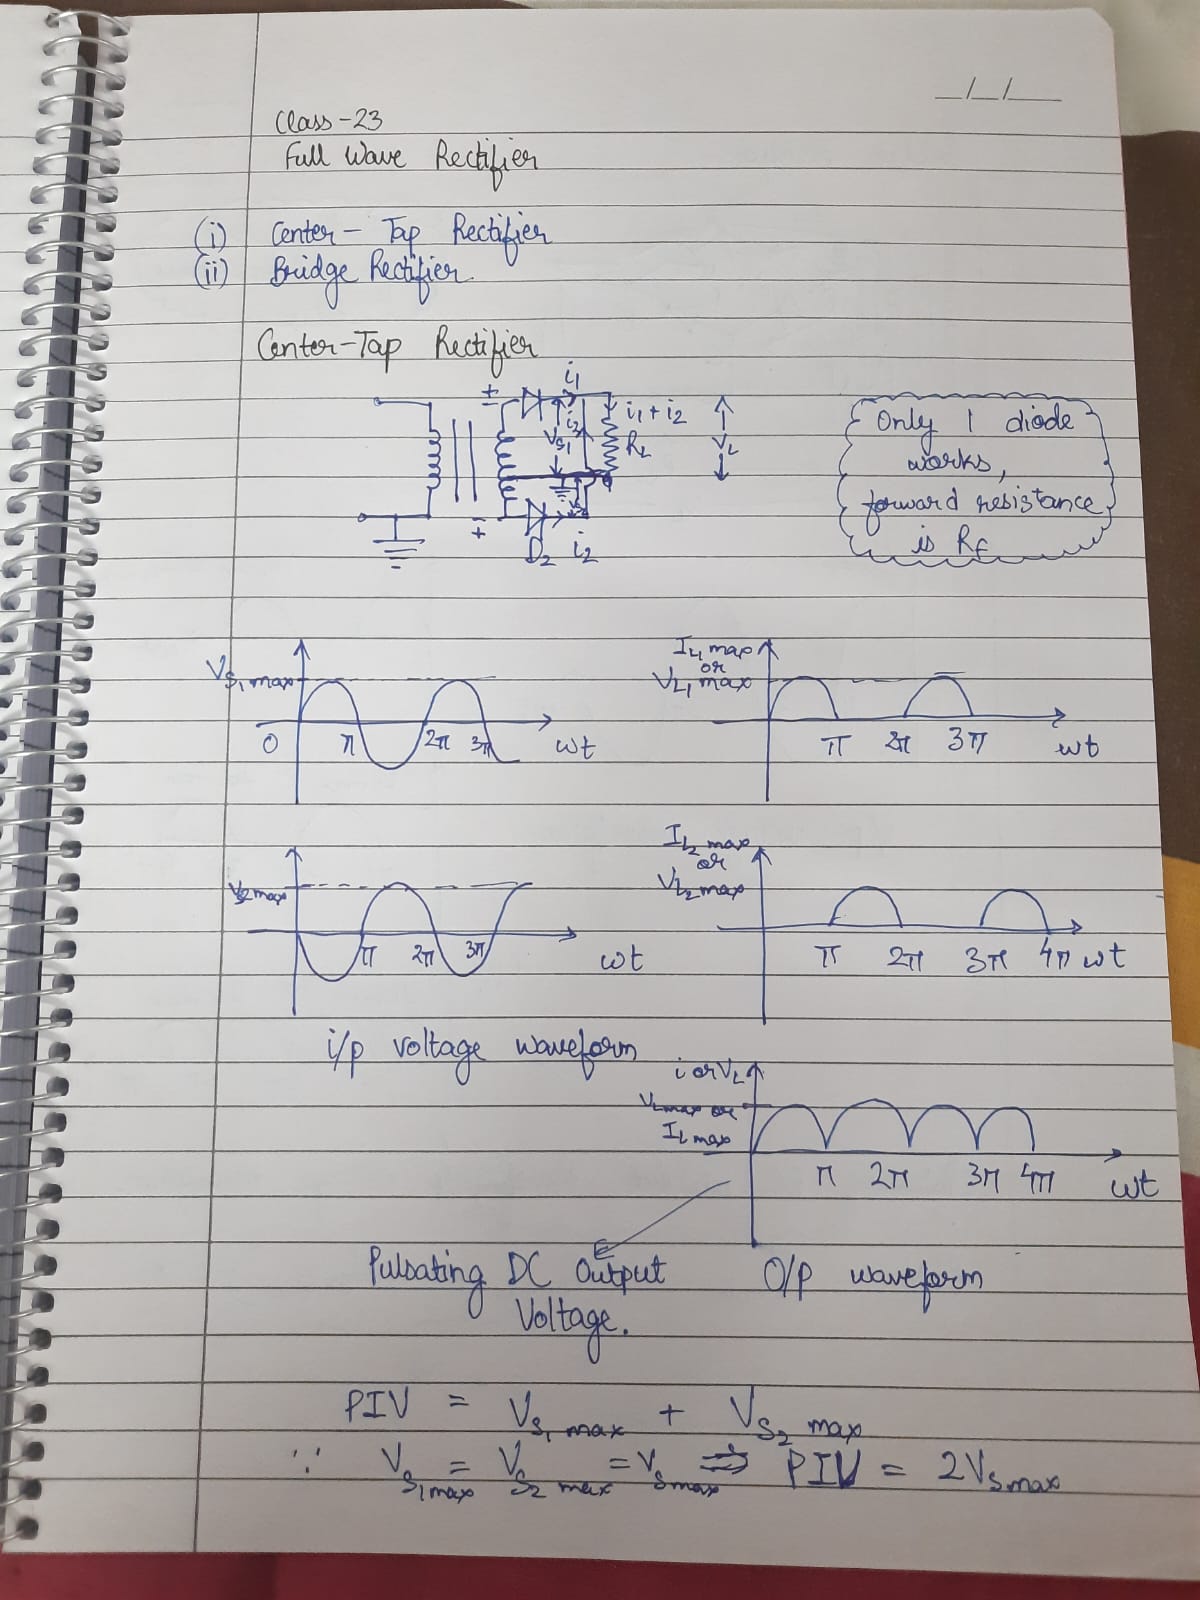 _/_/__
Class-23
Full Wave Rectifier
(i) Center- Tap Rectifier
(ii) Bridge Rectifier
Center-Tap Rectifier
± i₁
i₁+i₂
i₂
Vs₁
R_L
V_L
D₂ i₂
Only 1 diode
works,
forward resistance
is R_F
Vs₁ max
0 π 2π 3π wt
I_L₁ max
or
V_L₁ max
π 2π 3π wt
Vs2 max
π 2π 3π wt
I_L₂ max
or
V_L₂ max
π 2π 3π 4π wt
i/p voltage waveform
i or V_L
V_L max or
I_L max
π 2π 3π 4π wt
Pulsating DC Output
Voltage.
O/p waveform
PIV = Vs₁ max + Vs₂ max
∵ Vs₁ max = Vs₂ max = Vs max ⇒ PIV = 2Vs max